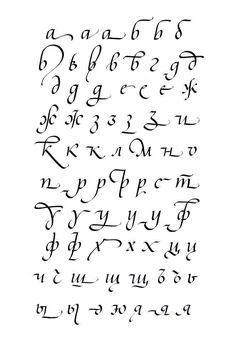 а а а б б б
в ъ в в в г д д
д д д е е е ж
ж ж з з з з и
к к к л м н о
п р р ф р с т
у у у у у ф
ф ф х х х ц ц
ч ч ш ш щ ъ ъ ь
ы ы э ю я я я